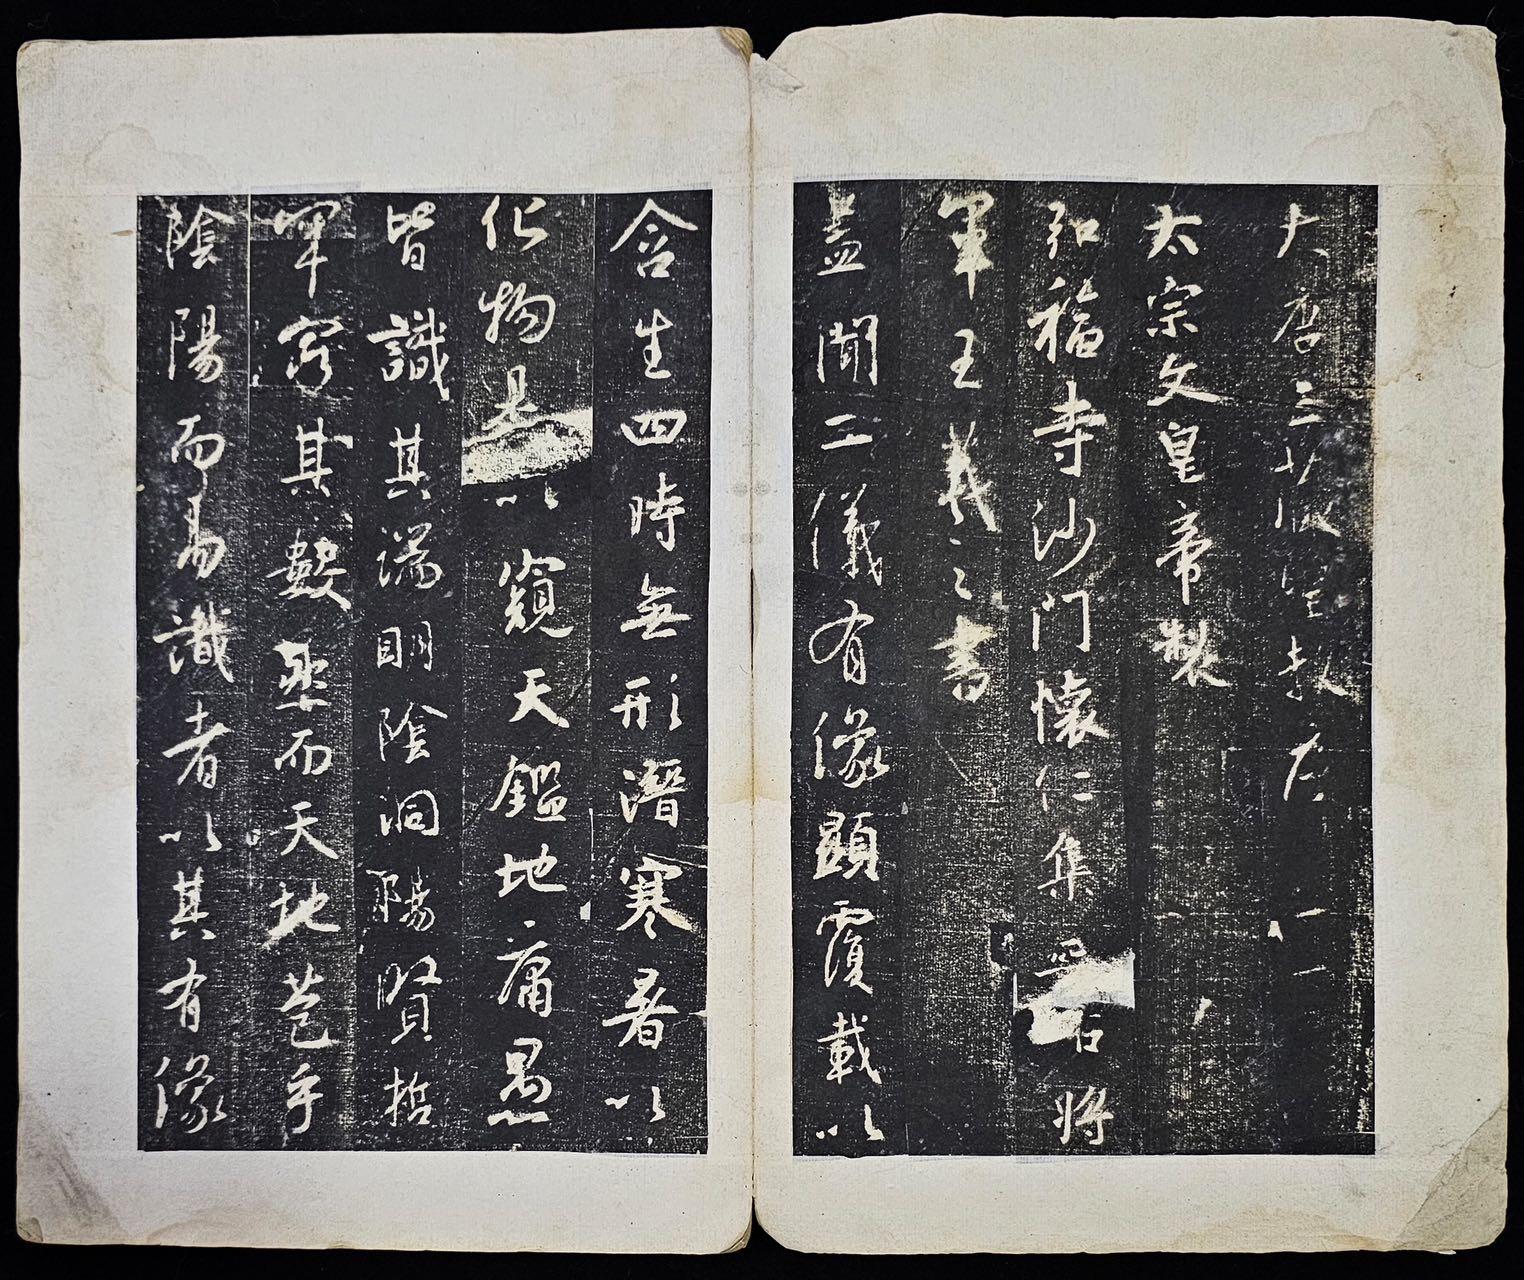 大唐三藏聖教序
太宗文皇帝製
弘福寺沙門懷仁集晉右將
軍王羲之書
蓋聞二儀有像顯覆載以
含生四時無形潛寒暑以
化物是以窺天鑑地庸愚
皆識其端明陰洞陽賢哲
罕窮其數然而天地苞乎
陰陽而易識者以其有像